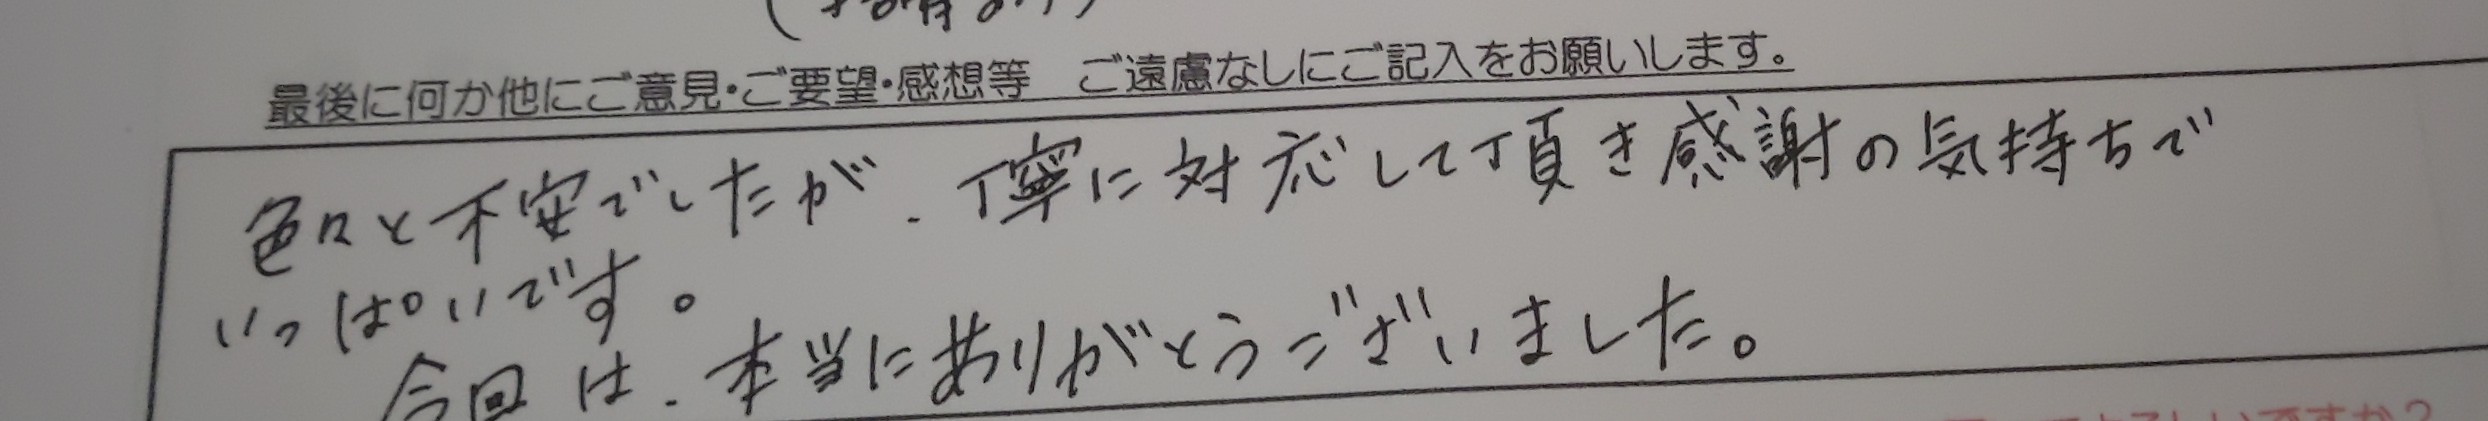 最後に何か他にご意見・ご要望・感想等　ご遠慮なしにご記入をお願いします。
色々と不安でしたが、丁寧に対応して頂き感謝の気持ちで
いっぱいです。
今回は、本当にありがとうございました。